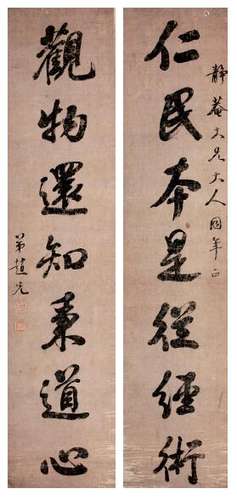 靜庵大兄大人同年正
仁民本是從經術
觀物還知秉道心
弟趙光